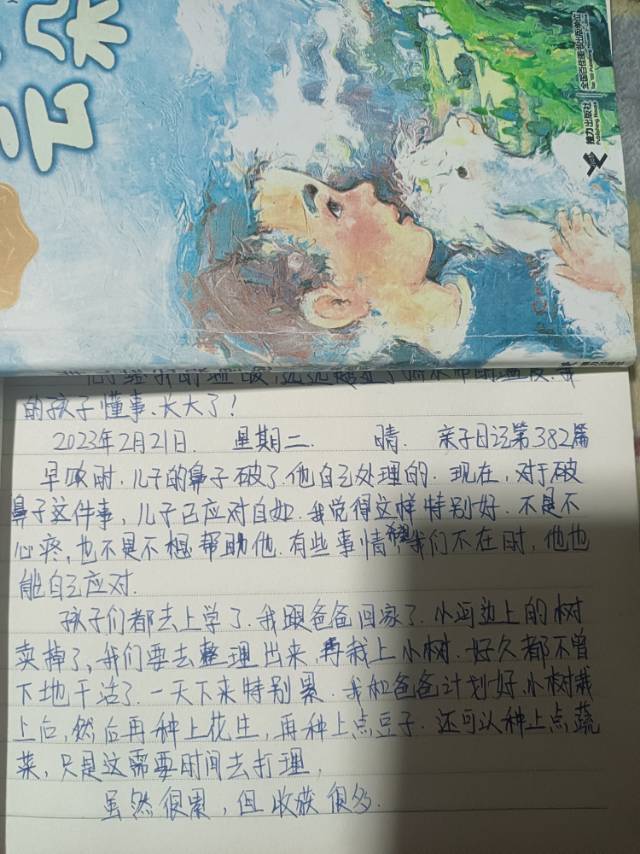 云朵
接力出版社
Publishing House
全国百佳图书出版单位
的孩子懂事.长大了!
2023年2月21日. 星期二. 晴. 亲子日记第382篇
早饭时,儿子的鼻子破了.他自己处理的.现在,对于破
鼻子这件事,儿子已应对自如.我觉得这样特别好.不是不
心疼,也不是不想帮助他.有些事情希望我们不在时,他也
能自己应对.
孩子们都去上学了.我跟爸爸回家了.小河边上的树
卖掉了,我们要去整理出来,再栽上小树.好久都不曾
下地干活了.一天下来特别累.我和爸爸计划好,小树栽
上后,然后再种上花生,再种上点豆子.还可以种上点蔬
菜,只是这需要时间去打理,
虽然很累,但收获很多.